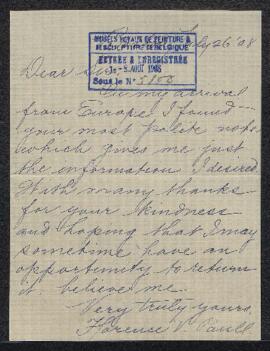 July 26 '08
MUSÉES ROYAUX DE PEINTURE &
DE SCULPTURE DE BELGIQUE
ENTRÉE & ENREGISTRÉE
le - 8 AOUT 1908
Sous le No 5800
Dear Sir:
On my arrival
from Europe, I found
your most polite note
which gives me just
the information I desired.
With many thanks
for your kindness
and hoping that I may
sometime have an
opportunity to return
it believe me.
Very truly yours,
Florence V.